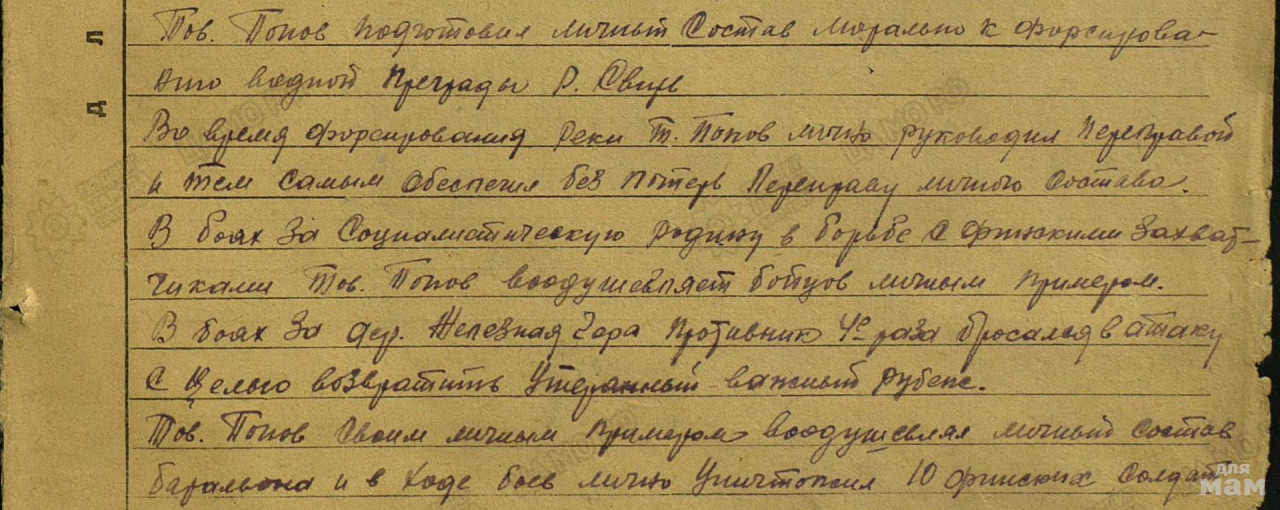 Тов. Попов подготовил личный состав морально к форсирова-
нию водной преграды р. Свирь
Во время форсирования реки т. Попов лично руководил переправой
и тем самым обеспечил без потерь переправу личного состава.
В боях за Социалистическую родину в борьбе с финскими захват-
чиками тов. Попов воодушевляет бойцов личным примером.
В боях за дер. Железная гора противник 4е раза бросался в атаку
с целью возвратить утерянный важный рубеж.
Тов. Попов своим личным примером воодушевлял личный состав
батальона и в ходе боев лично уничтожил 10 финских солдат
Д Л
для
мам